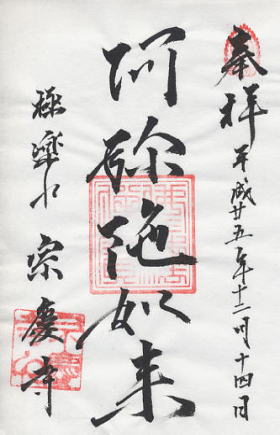 奉拝 平成廿五年十二月十四日
阿弥陀如来
極楽水 宗慶寺